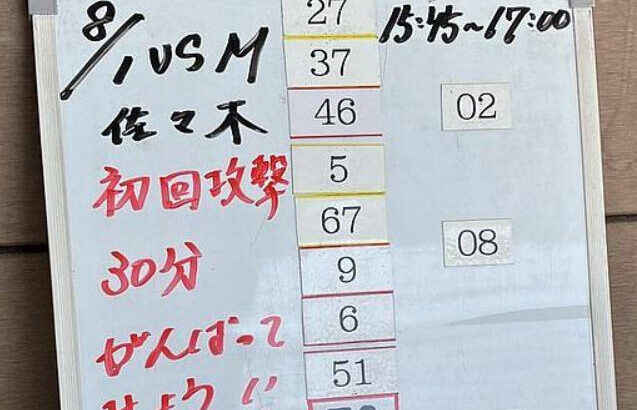 8/1 VS M
佐々木
初回攻撃
30分
がんばって
27
37
46
5
67
9
6
51
15:45~17:00
02
08